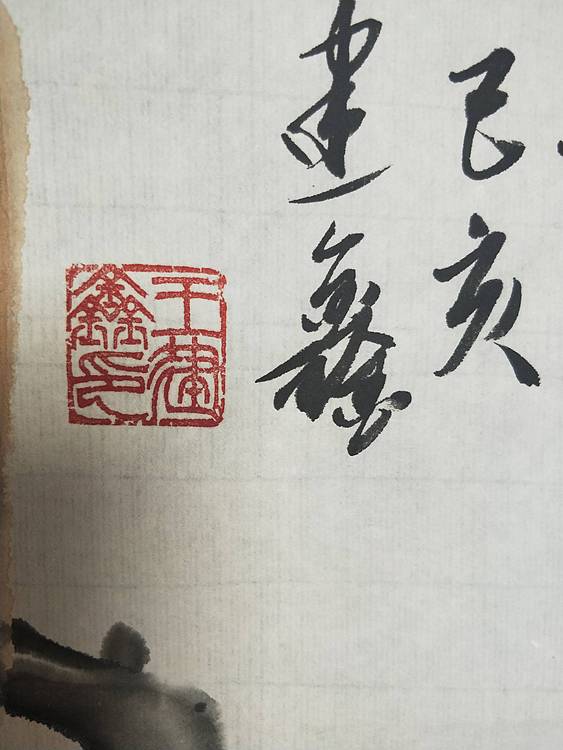 己亥
建鑫
王建鑫印